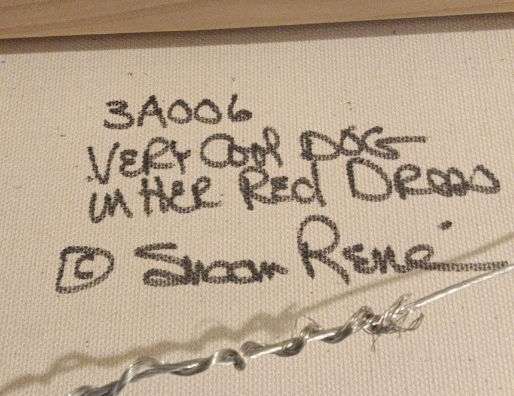 3A006
VERY Cool DOG
in HER Red DRESS
© René